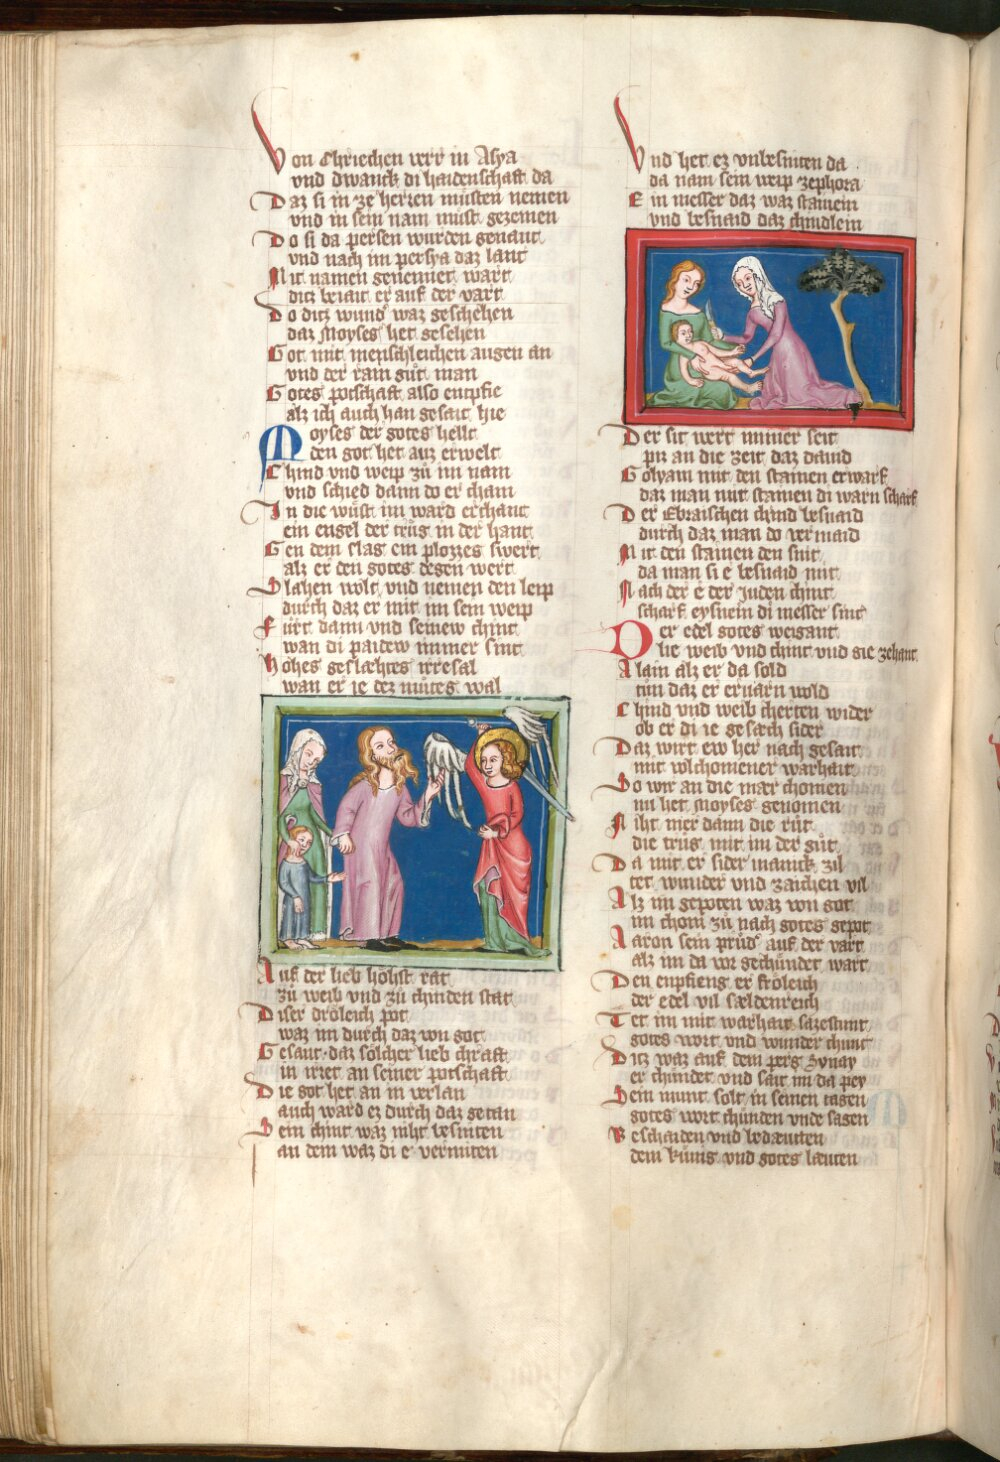 Von Chriechen verr in Asya
vnd dwanck di haidenschaft da
Daz si in ze herren müsten nemen
vnd in sein nam müst gezemen
Do si da persen wurden genant
vnd nach im persya daz lant
Mit namen genennet wart
ditz belait er auf der vart
Do ditz wund' waz geschehen
daz Moyses het gesehen
Got mit menschleichen augen an
vnd der rain gůt man
Gotes potschaft also enpfie
alz ich auch han gesait hie
Moyses der gotes hellt
den got het auz erwelt
Chind vnd weip zů im nam
vnd schied dann do er cham
In die wůst im ward erchant
ein engel der trůg in der hant
Gen dem slag ein plozzes swert
alz er den gotes degen wert
Slahen wolt vnd nemen den leip
durch daz er mit im sein weip
Fůrt dann vnd seinew chint
wan di paidew immer sint
Hohes geslæhtes irresal
wan er ie dez můtes wal
Auf der lieb höhst rat
zů weib vnd zů chinden stat
Diser dröleich pot
waz im durch daz von got
Gesant daz sölcher lieb chraft
in irret an seiner potschaft
Die got het an in verlan
auch ward ez durch daz getan
Sein chint waz niht besniten
an dem waz di e vermiten
Vnd het ez vnbesniten da
da nam sein weip zephora
Ein messer daz waz stainein
vnd besnaid daz chindlein
Der sit wert immer seit
piz an die zeit daz dauid
Golyam mit den stainen erwarf
daz man mit stainen di warn scharf
Der Ebraischen chind besnaid
durch daz man do vermaid
Mit den stainen den snit
da man si e besnaid mit
Nach der e der Juden chint
scharf eysnein di messer sint
Der edel gotes weigant
lie weib vnd chint vnd gie zehant
Alain alz er da sold
tůn daz er eruarn wold
Chind vnd weib cherten wider
ob er di ie gesæch sider
Daz wirt ew her nach gesait
mit volchomener warhait
So wir an die mær chomen
nu het Moyses genomen
Niht mer dann die růt
die trůg mit im der gůt
Da mit er sider manick zil
tet wunder vnd zaichen vil
Alz im gepoten waz von got
im chom zů nach gotes gepot
Aaron sein průd' auf der vart
alz im da vor gechůndet wart
Den enpfieng er frőleich
der edel vil sældenreich
Tet im mit warhait sazestunt
gotes wort vnd wunder chunt
Ditz waz auf dem perg Synay
er chündet vnd sait im da pey
Sein munt solt in seinen tagen
gotes wort chünden vnde sagen
Beschaiden vnd bedæuten
dem künig vnd gotes læuten